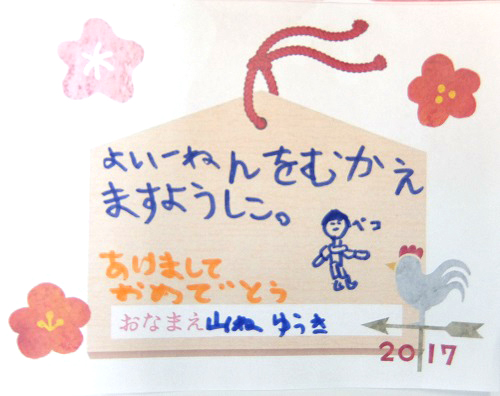 よいーねんをむかえ
ますようしに。
ペコ
あけまして
おめでとう
おなまえ 山ね ゆうき
2017